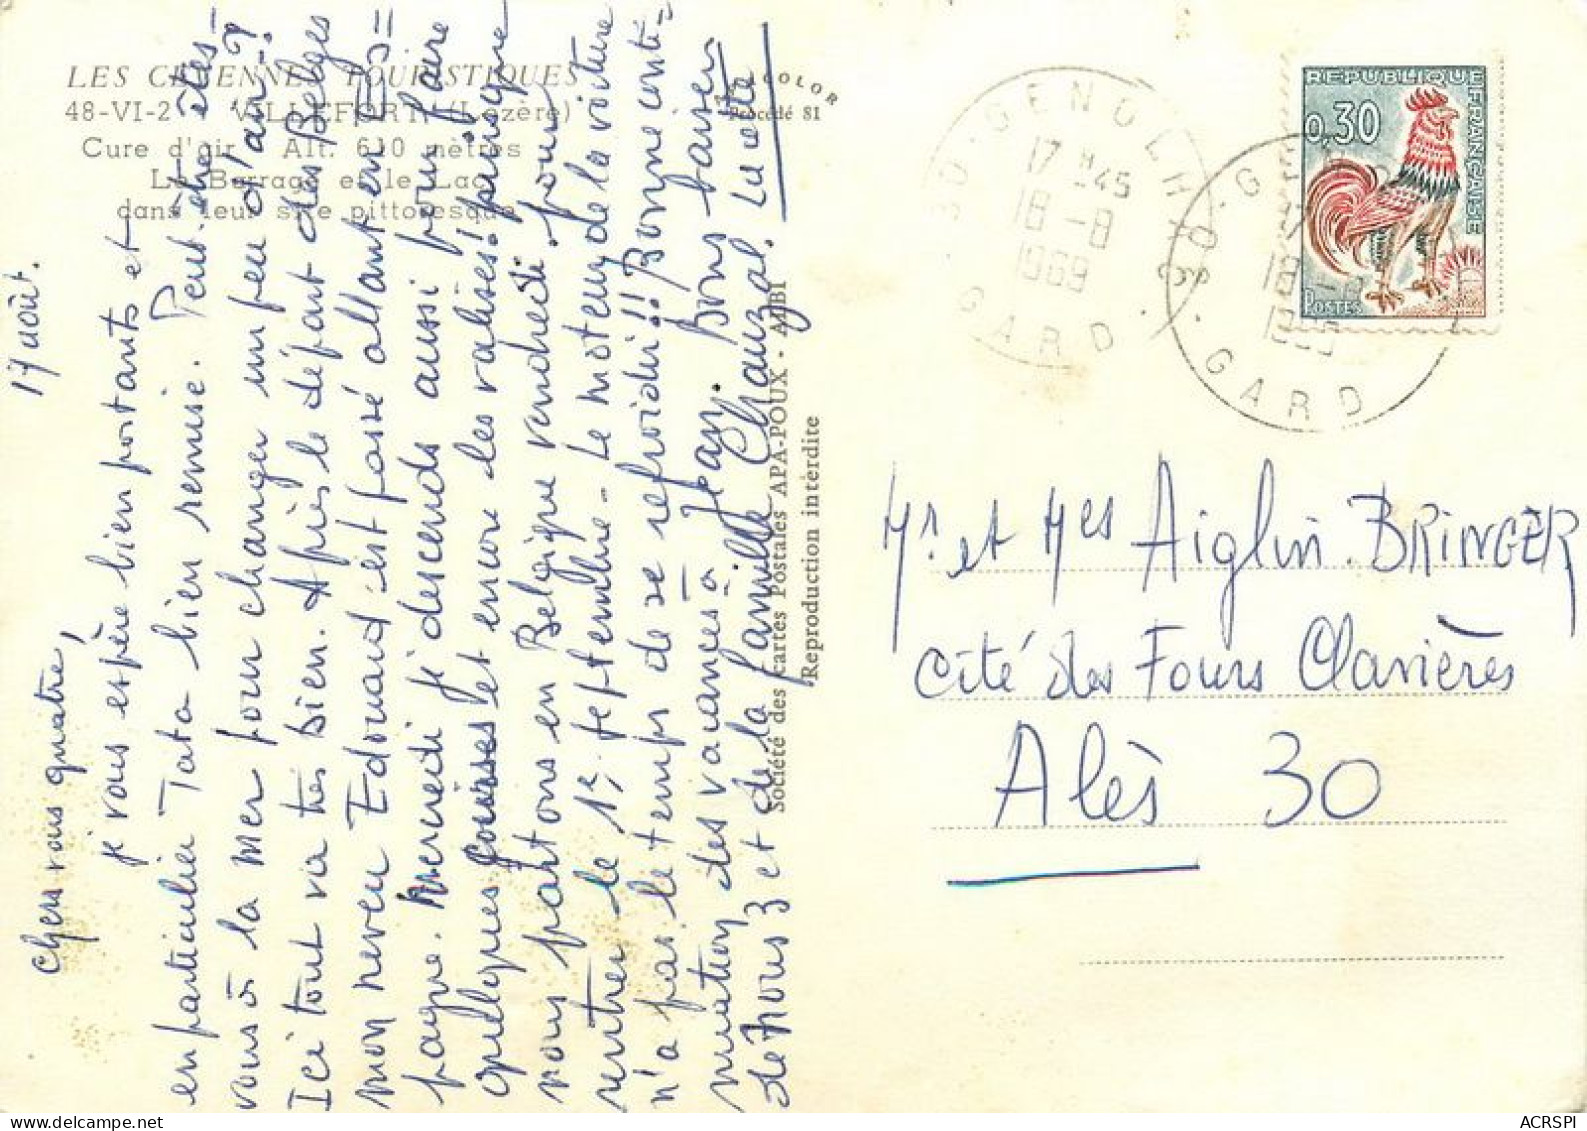 LES CEVENNES TOURISTIQUES
48-VI-2 VILLEFORT (Lozère)
Cure d'air Alt. 610 mètres
Le Barrage et le Lac
dans leur site pittoresque
COLOR
Procédé 81
17 août.
Chers vous quatre,
je vous espère bien portants et
en particulier Tata bien remise. Peut-être êtes-
vous à la mer pour changer un peu d'air?
Ici tout va très bien. Après le départ des Belges
mon neveu Edouard est passé allant en Es=
pagne. Mercredi je descends aussi pour faire
quelques courses et encore les valises! puisque
nous partons en Belgique vendredi pour
rentrer le 1er septembre - Le moteur de la voiture
n'a pas le temps de se refroidir!! Bonne conti-
nuation des vacances à Jean. Bons baisers
de nous 3 et de la famille Chauzal. Lucette
Société des cartes Postales APA-POUX - ALBI
Reproduction interdite
30-GENOLHAC
17 H 45
18 -8
1969
GARD
REPUBLIQUE FRANÇAISE
0,30
POSTES
30-G
18 -8
GARD
Mr. et Mes Aiglin. BRINGER
Cité des Fours Clavières
Alès 30
ACRSPI